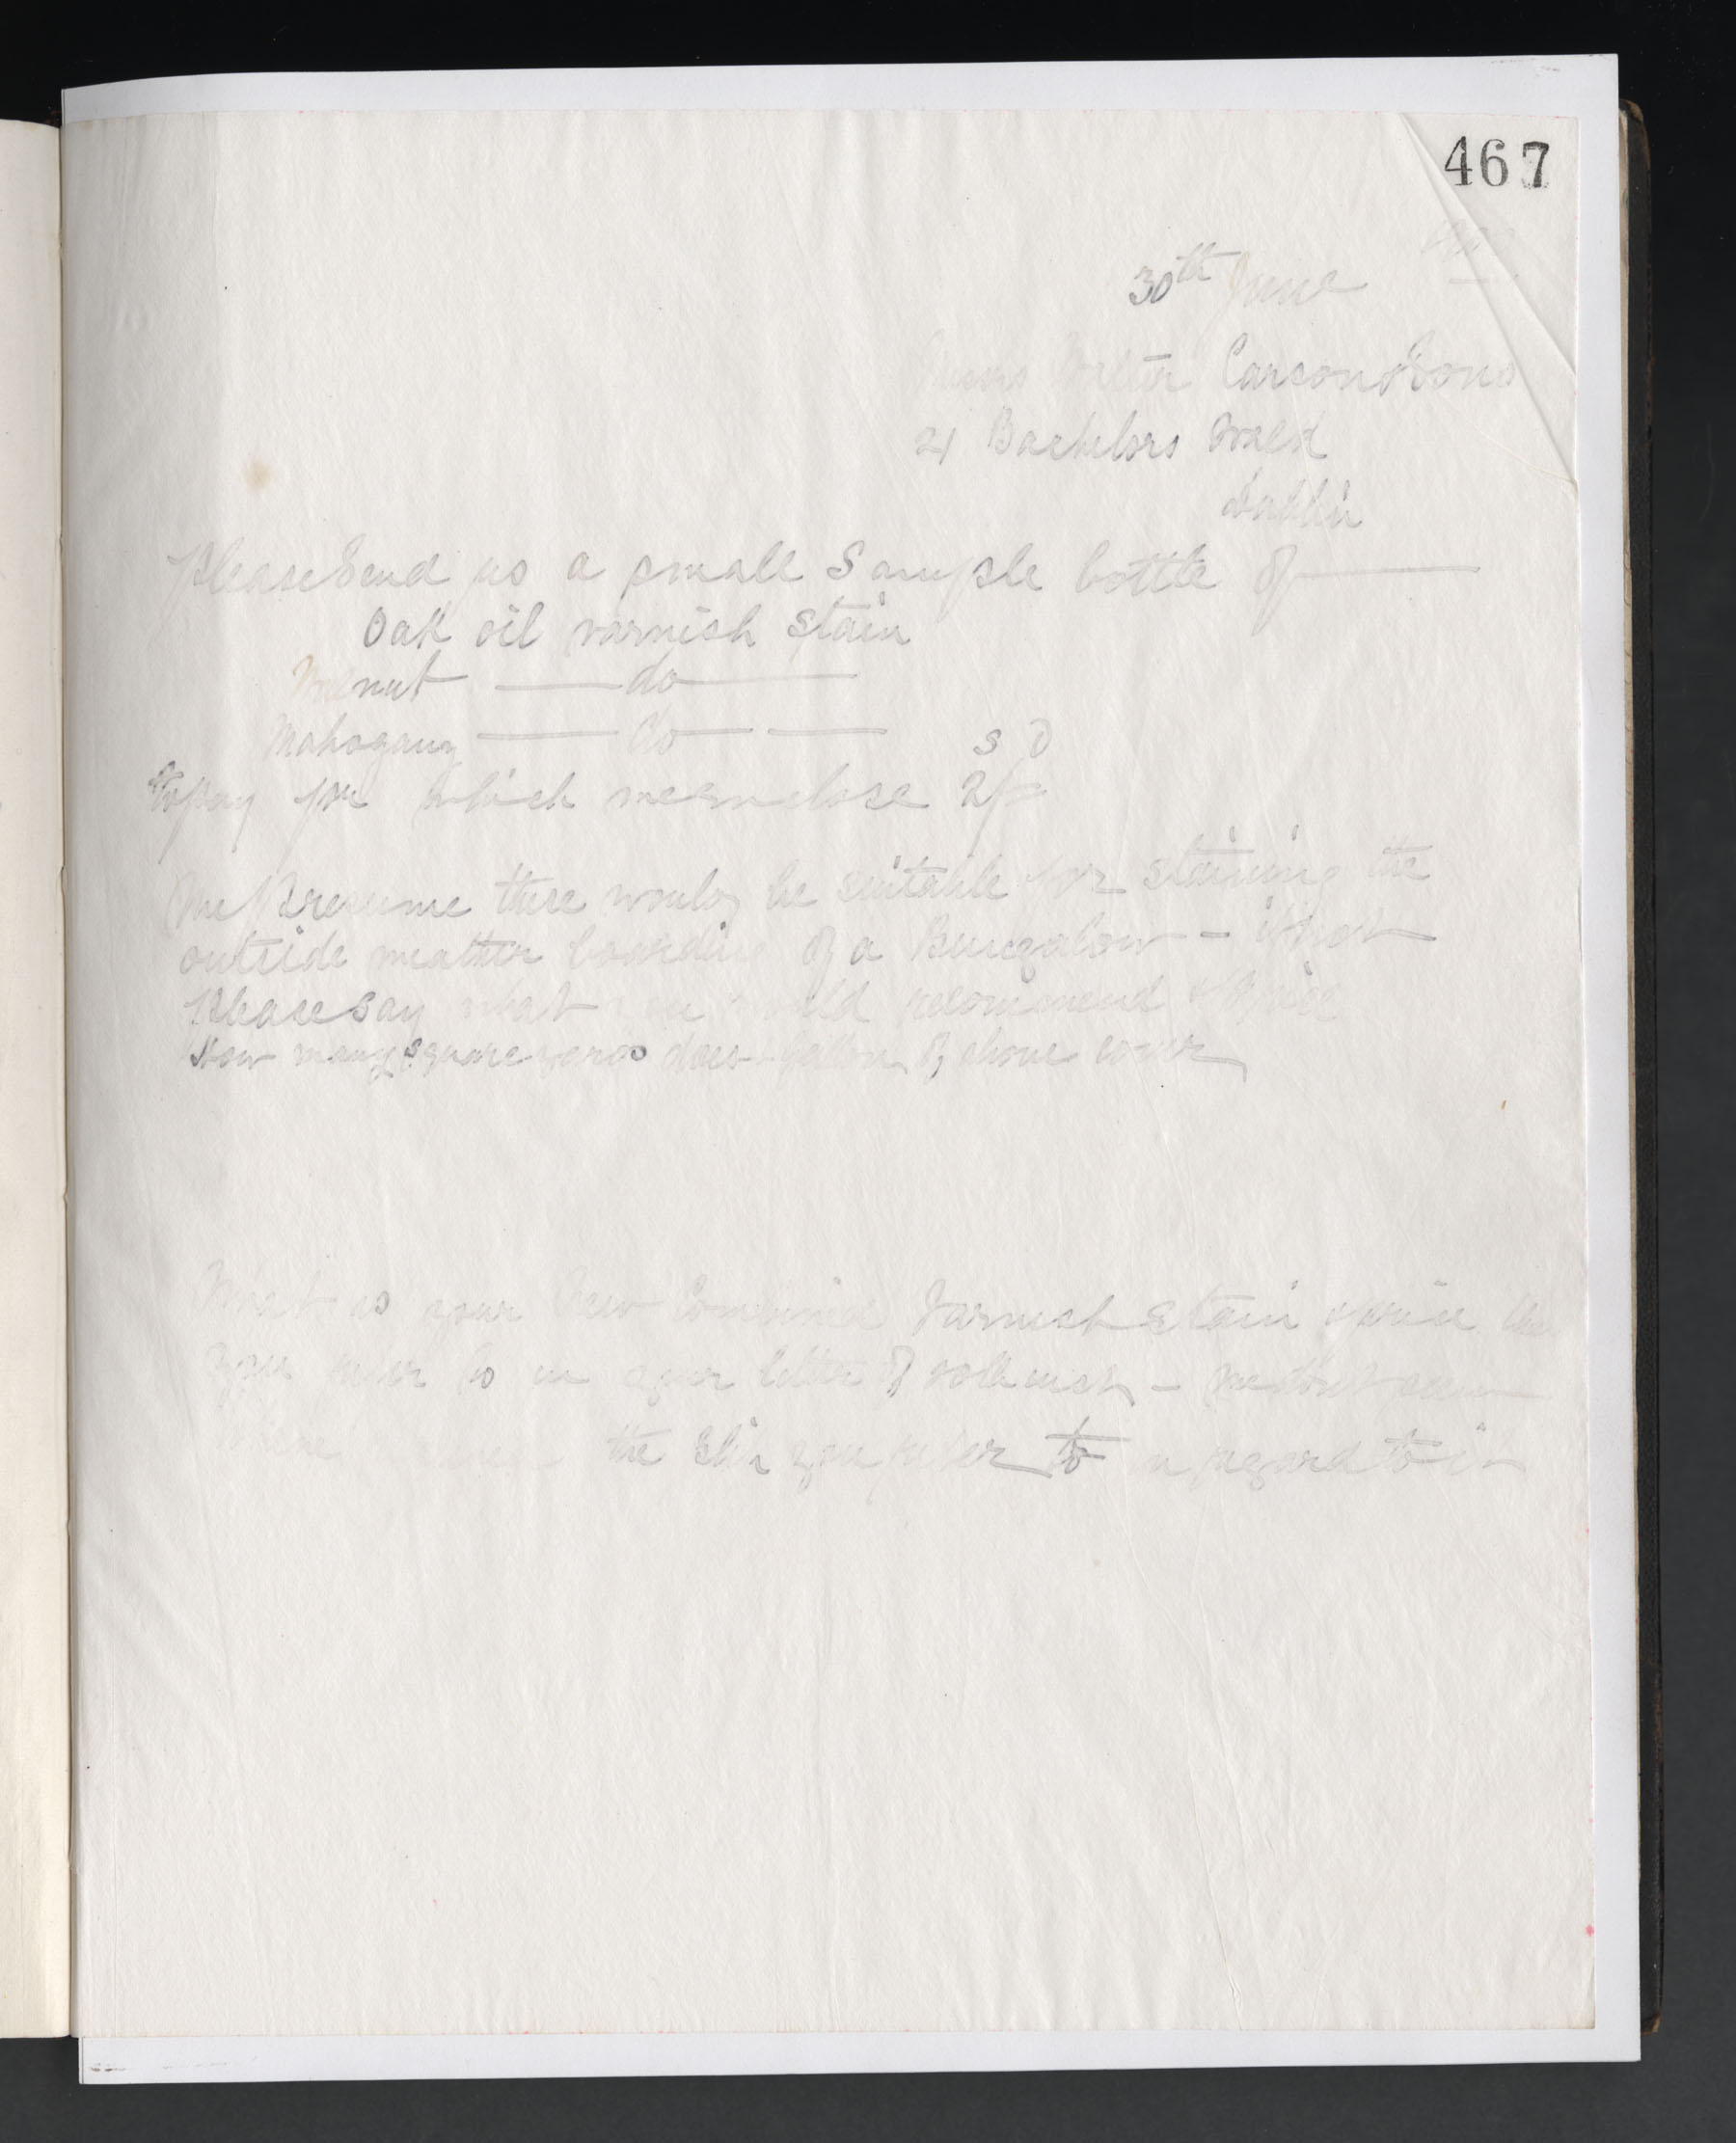 467
30th June
Messrs Walter Carson & Sons
21 Bachelors Walk
Dublin
Please Send us a small Sample bottle of
Oak oil varnish stain
Walnut do
Mahogany do
s D
to pay for which we enclose 2/=
We presume these would be suitable for staining the
outside weather boarding of a Bungalow - if not
Please say what you would recommend & price
How many square yards does gallon of above cover
What is your New Combined Varnish Stain & price
you refer to in your letter of 20th inst - we don't seem
the slip you refer to in regard to it